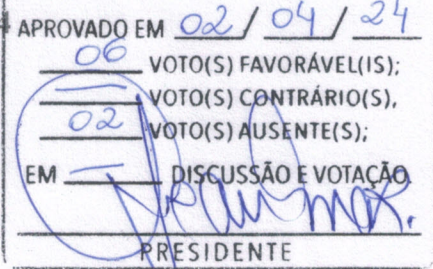 APROVADO EM 02/04/24
06 VOTO(S) FAVORÁVEL(IS);
— VOTO(S) CONTRÁRIO(S),
02 VOTO(S) AUSENTE(S);
EM — DISCUSSÃO E VOTAÇÃO
PRESIDENTE